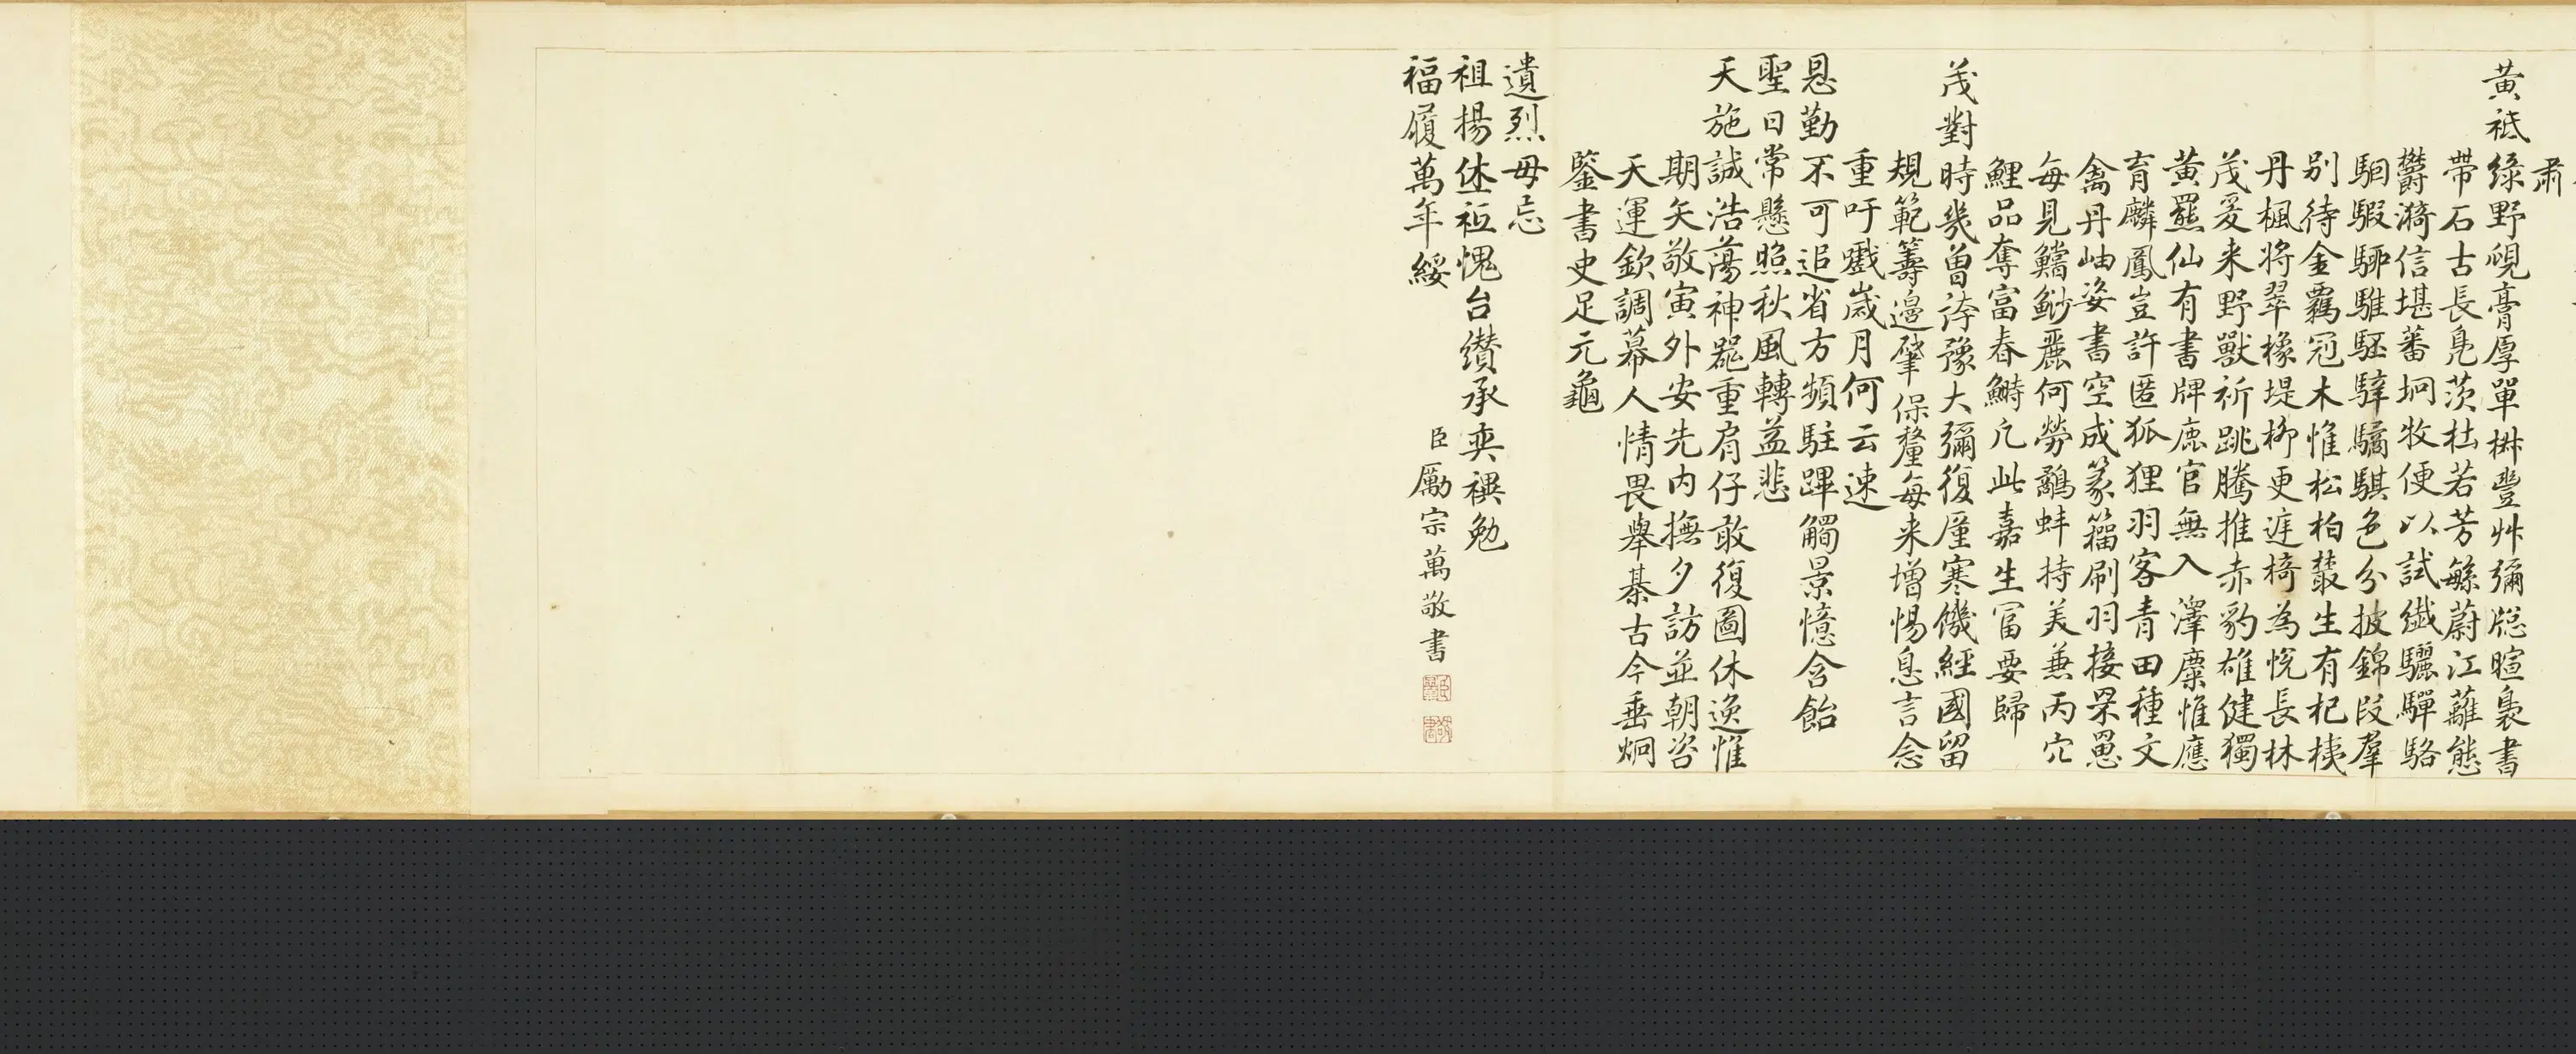 肅
黃祗綠野峴膏厚單椒豐艸彌窓暄裊書
帶石古長凫茨杜若芳緐蔚江蘺態
欝漪信堪蕃坰牧便以試纎驪驒駱
駰騢騨騅駓騂驈騏色分披錦段羣
别待金羈冠木惟松柏叢生有杞桋
丹楓將翠橡堤栁更迋椅為恱長林
茂爰来野獸祈跳騰推赤豹雄健獨
黃羆仙有書牌鹿官無入澤麋惟應
育麟鳳豈許匿狐狸羽客青田種文
禽丹岫姿書空成篆籀刷羽接罘罳
每見鱨魦麗何勞鷸蚌持美兼丙穴
鯉品奪富春鰣凢此嘉生冨要歸
茂對時幾曽誇豫大彌復廑寒饑經國留
規範籌邊肇保釐每来增惕息言念
重吁戲嵗月何云速
恩勤不可追省方頻駐蹕觸景憶含飴
聖日常懸照秋風轉益悲
天施誠浩蕩神噐重肩仔敢復圖休逸惟
期矢敬寅外安先内撫夕訪並朝咨
天運欽調幕人情畏舉棊古今垂炯
鍳書史足元龜
遺烈毋忘
祖揚庥祗愧台纘承奕禩勉
福履萬年綏
臣厲宗萬敬書